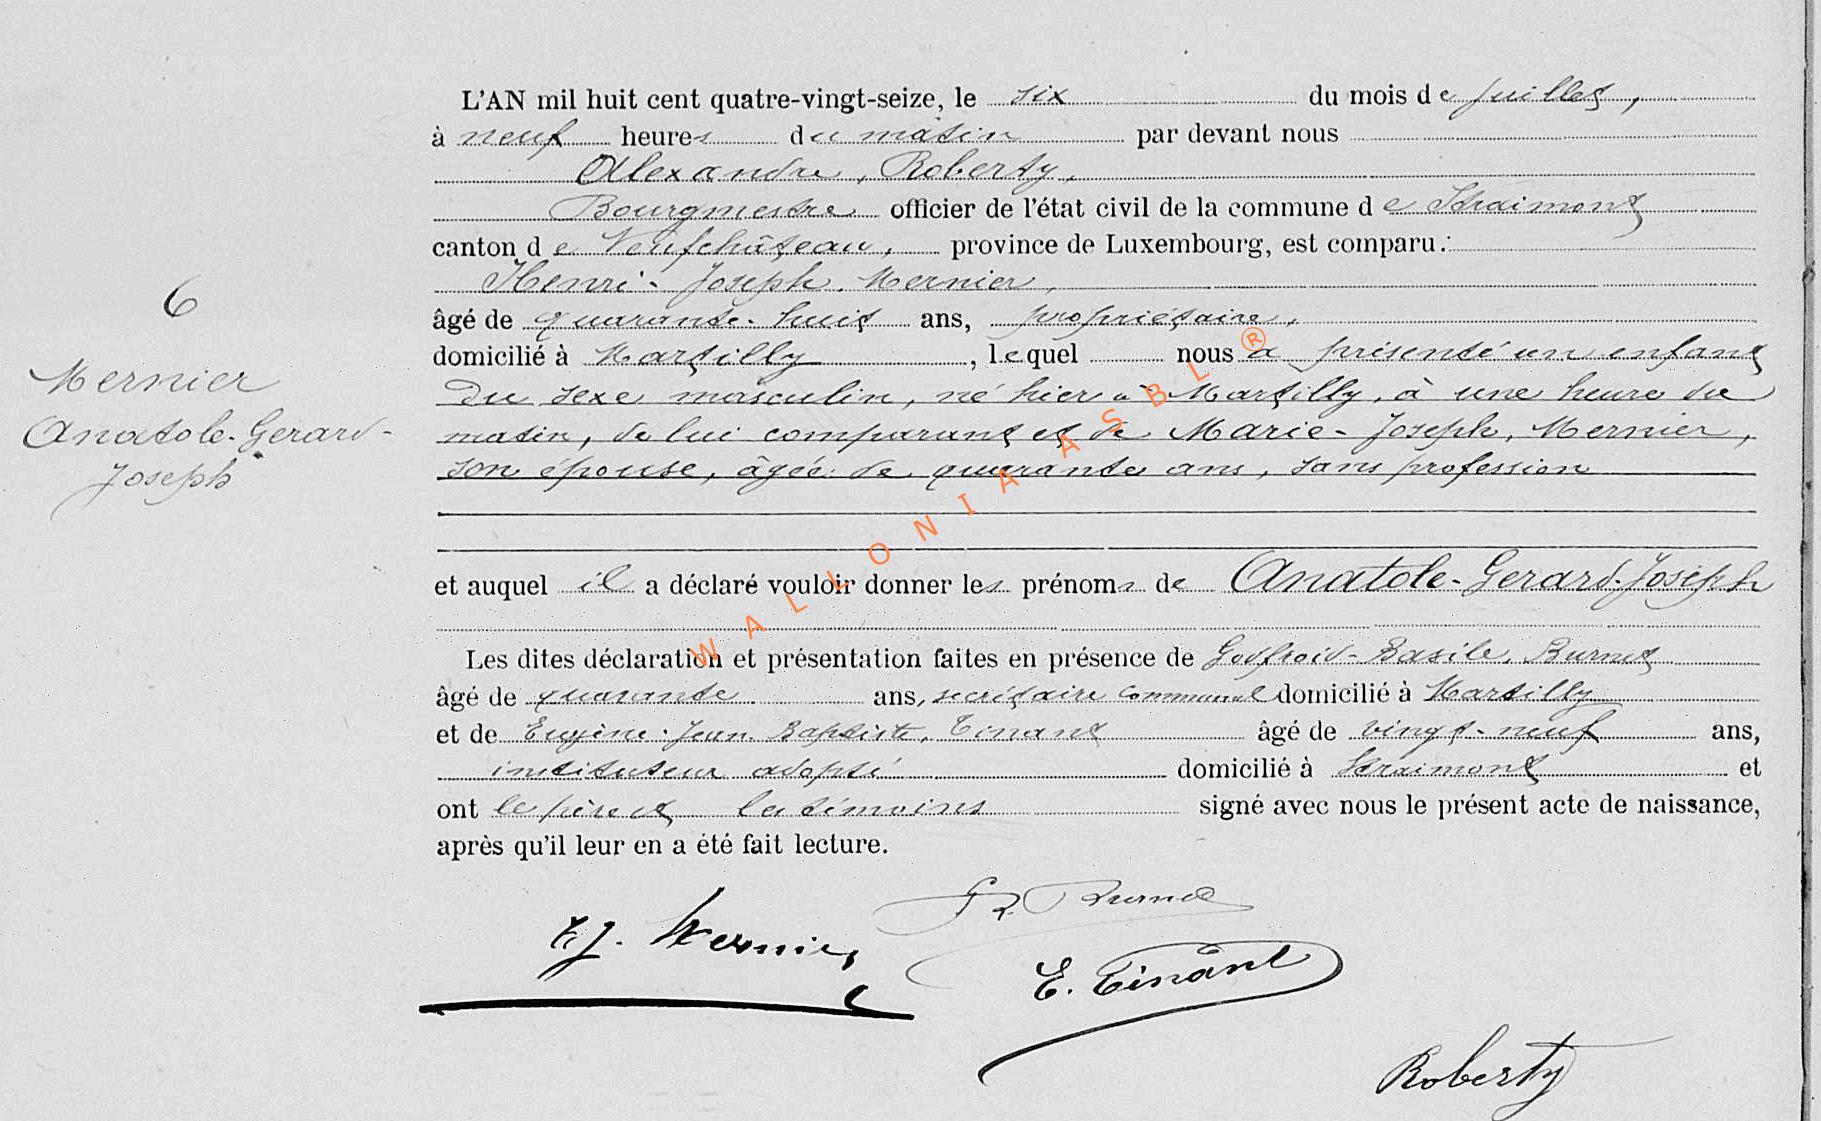 L'AN mil huit cent quatre-vingt-seize, le six du mois de juillet,
à neuf heures du matin par devant nous
Alexandre, Roberty,
Bourgmestre officier de l'état civil de la commune de Straimont
canton de Neufchâteau, province de Luxembourg, est comparu :
Henri-Joseph, Mernier,
6
âgé de quarante-huit ans, propriétaire,
domicilié à Martilly, lequel nous a présenté un enfant
Mernier
du sexe masculin, né hier à Martilly, à une heure du
Anatole-Gerard-
matin, de lui comparant et de Marie-Joseph, Mernier,
Joseph
son épouse, âgée de quarante ans, sans profession
et auquel il a déclaré vouloir donner les prénoms de Anatole-Gerard-Joseph
Les dites déclaration et présentation faites en présence de Godfroid-Basile, Burnet
âgé de quarante ans, secrétaire communal domicilié à Martilly
et de Eugène-Jean-Baptiste, Tinant âgé de vingt-neuf ans,
instituteur adopté domicilié à Straimont et
ont le père et les témoins signé avec nous le présent acte de naissance,
après qu'il leur en a été fait lecture.
H J. Mernier
Burnet
E. Tinant
Roberty
WALLONIA ASBL ®